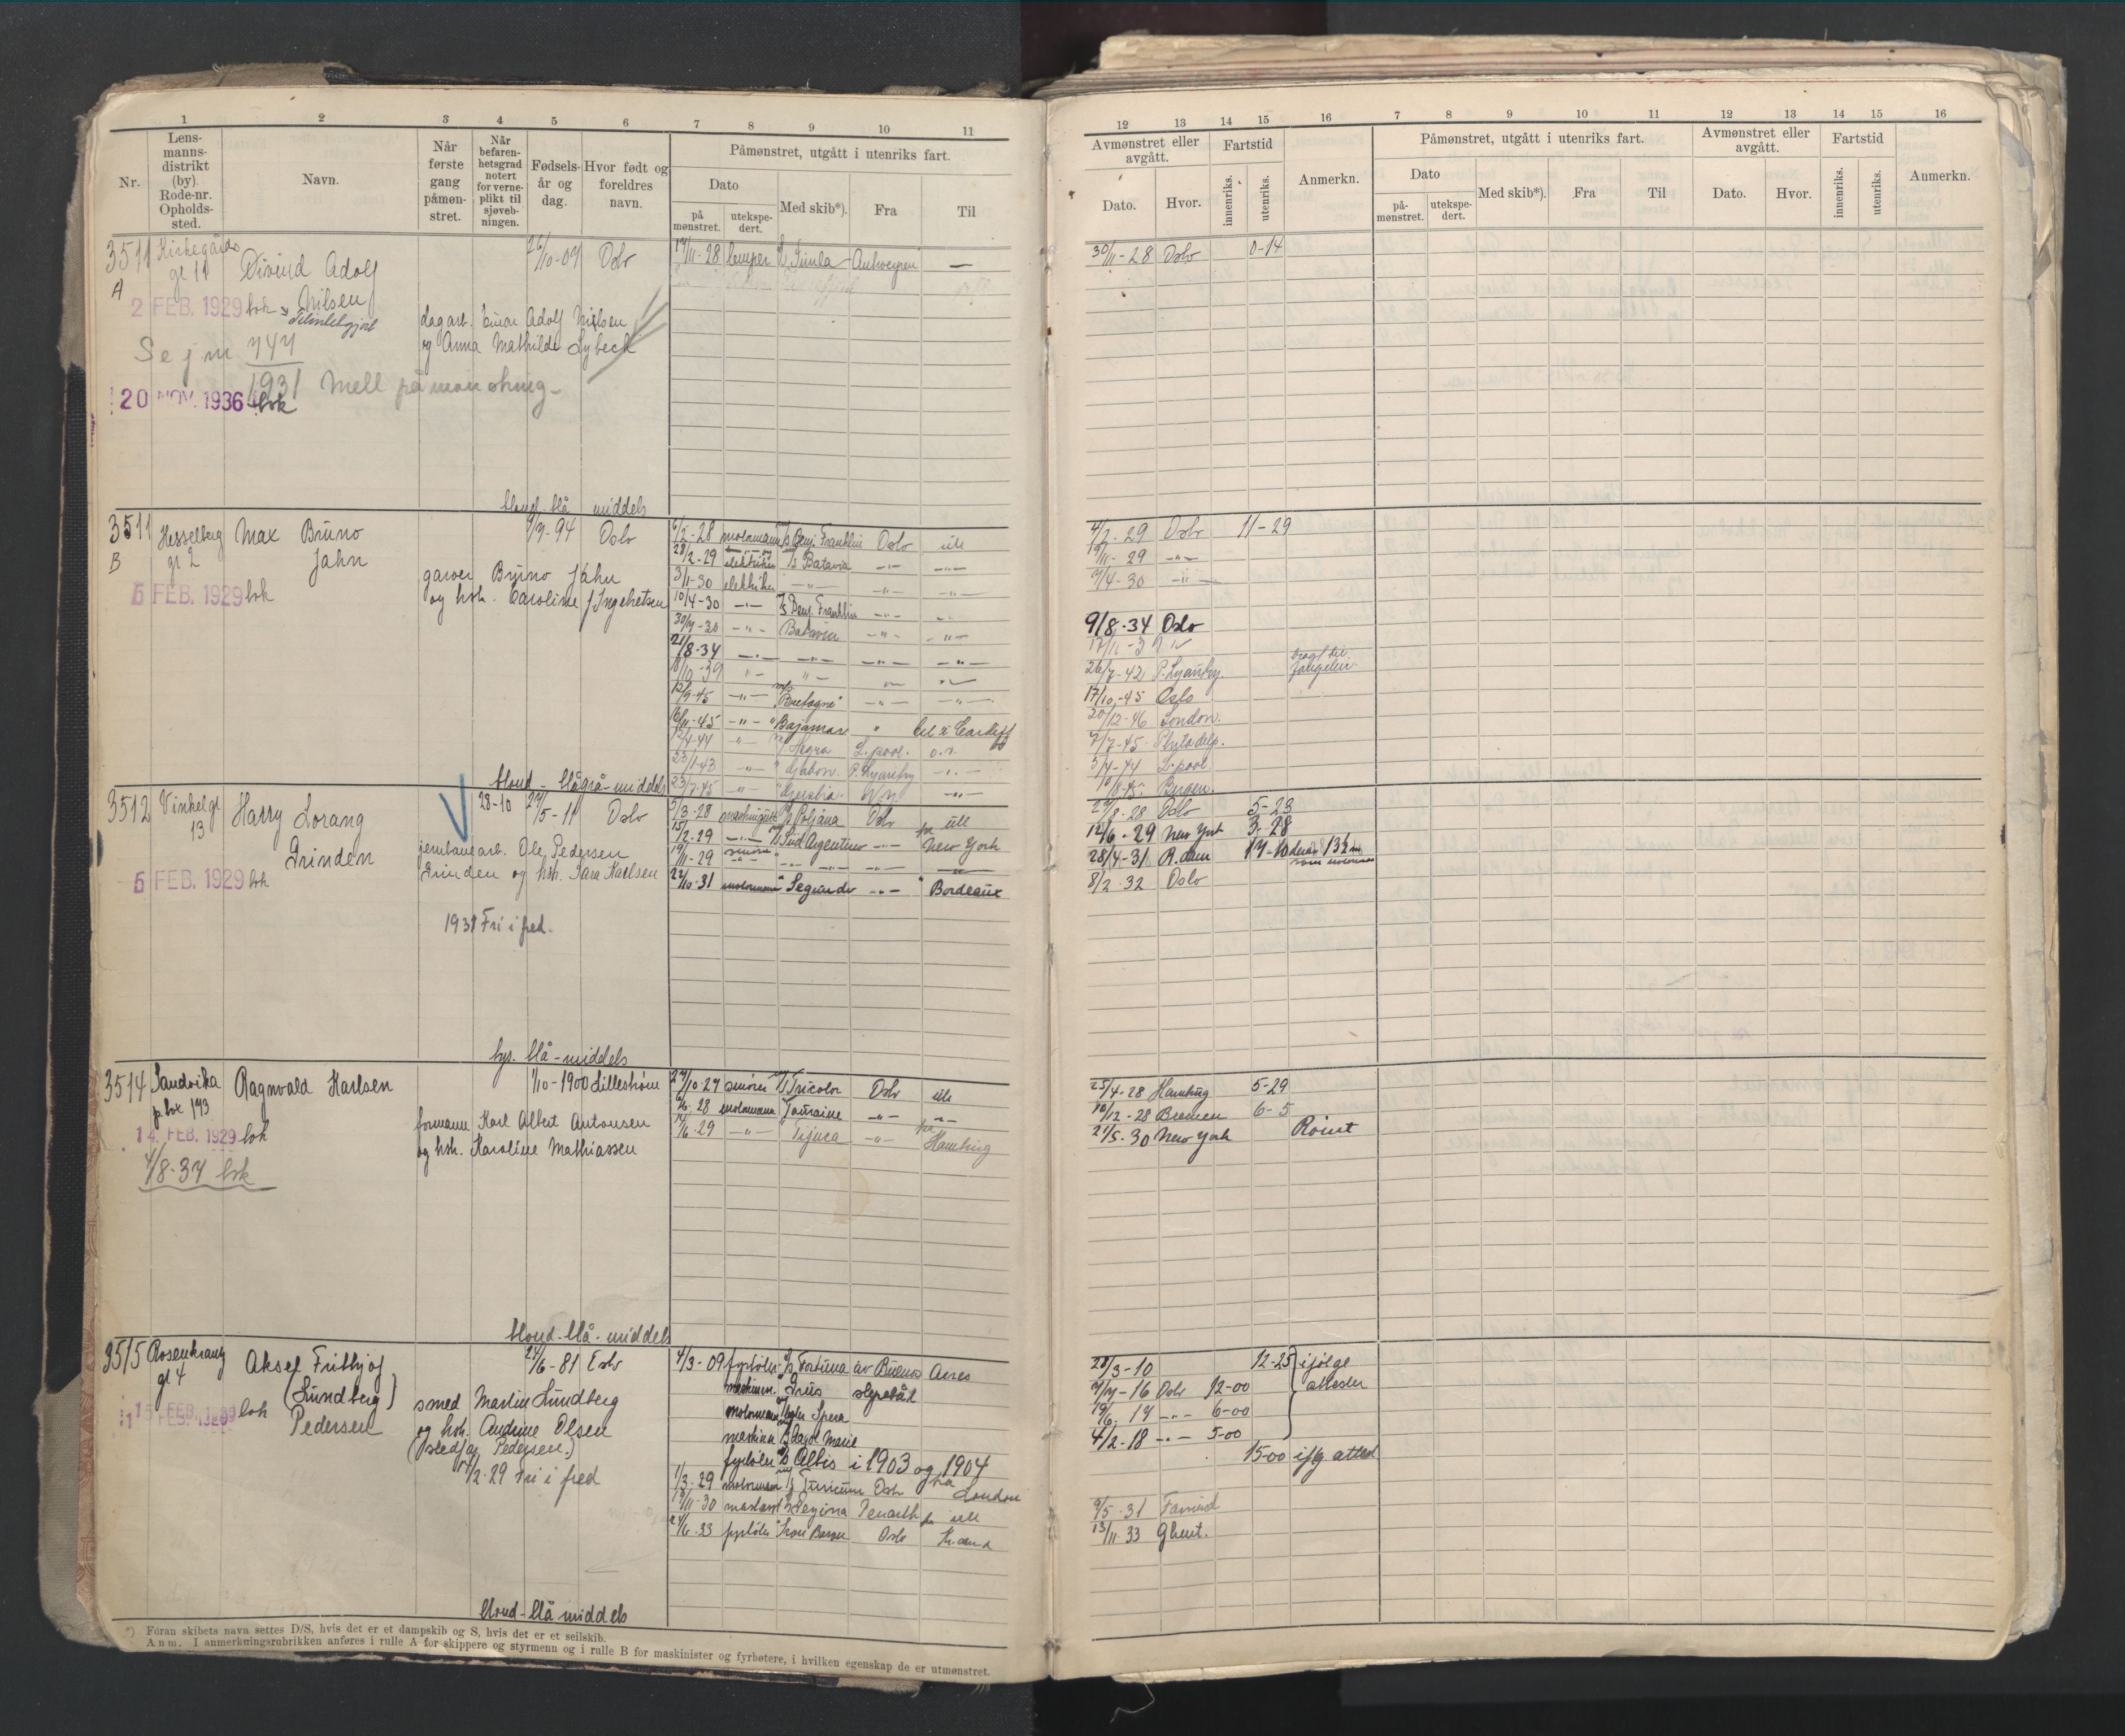 1 2 3 4 5 6 7 8 9 10 11
Nr. Lens-manns-distrikt (by). Rode-nr. Opholds-sted. Navn. Når første gang påmøn-stret. Når befaren-hetsgrad notert for verne-plikt til sjøveb-ningen. Fødsels-år og dag. Hvor født og foreldres navn.
Påmønstret, utgått i utenriks fart.
Dato Med skib*). Fra Til
på mønstret. utekspe-dert.
3511 A Kirkegårds gt 11 Eivind Adolf Nilsen 26/10-09 Oslo 17/11-28 lemper Antwerpen —
2 FEB. 1929 bok
dagarb. Einar Adolf Nilsen
og Anna Mathilde Lybeck
747
1931 Mell påmønstring
20 NOV. 1936 bok
blond-blå middels
3511 B Hesselberg gt 2 Max Bruno Jahn 9/9-94 Oslo
5 FEB. 1929 bok
garver Bruno Jahn
og hstr. Caroline f Ingebretsen
6/2-28 motormann Benj. Franklin Oslo ute
28/2-29 elektriker Batavia -"- -"-
3/11-30 elektriker -"- -"- -"-
10/4-30 -"- Benj. Franklin -"- -"-
30/7-30 -"- Batavia -"- -"-
21/8-34 -"- -"- -"- -"-
18/10-39 -"- -"-
12/9-45 -"- "Bretagne" -"- -"-
16/11-45 -"- "Bajamar " til x Cardiff
12/4-44 " Hegra L.pool. o.s.
23/1-43 -"- " Gabon. P. Lyautey -"-
23/7-45 -"- -"-
blond-blågrå-middels
3512 Vinkelgt 13 Harry Lorang Grinden 28-10 24/5-11 Oslo
5 FEB. 1929 bok
jernbanearb. Ole Pedersen
Grinden og hstr. Sara Karlsen
1931 Fri i fred.
3/3-28 maskingutt Poljana Oslo ute
15/2-29 -"- Sud Argentino -"- pa New York
19/11-29 smører -"- -"-
22/10-31 motormann "Segundo -"- " Bordeaux
lys. blå-middels
3514 Sandvika p.box 193 Ragnvald Karlsen 1/10-1900 Lillestrøm
14. FEB. 1929 bok
4/8-37 bok
formann Karl Albert Antonsen
og hstr. Karoline Mathiassen
27/10-27 smører Tricolor Oslo ute
6/6-28 motormann Touraine -"- -"-
17/6-29 -"- Tijuca -"- pa Hamburg
blond-blå-middels
3515 Rosenkrantz gt 4 Aksel Frithjof (Lundberg) Pedersen 24/6-81 Oslo
15 FEB. 1929 bok
smed Martin Lundberg
og hstr. Andrine Olsen
(stedfar Pedersen.)
15/2-29 Fri i fred
4/3-09 fyrbøter Fortuna av Buenos Aires
maskinm. Grus slepebåt
motormann Spera
maskinm Dagot Marie
fyrbøter Albis i 1903 og 1904
1/3-29 motormann Turicum Oslo pa London
13/11-30 Regina Penarth pa ute
27/6-33 fyrbøter Oslo
blond-blå middels
*) Foran skibets navn settes D/S, hvis det er et dampskib og S, hvis det er et seilskib.
Anm. I anmerkningsrubrikken anføres i rulle A for skippere og styrmenn og i rulle B for maskinister og fyrbøtere, i hvilken egenskap de er utmønstret.
12 13 14 15 16 7 8 9 10 11 12 13 14 15 16
Avmønstret eller avgått. Fartstid Anmerkn. Påmønstret, utgått i utenriks fart. Avmønstret eller avgått. Fartstid Anmerkn.
Dato. Hvor. innenriks. utenriks. Dato på-mønstret. utekspe-dert. Med skib*). Fra Til Dato. Hvor. innenriks. utenriks.
30/11-28 Oslo 0-14
4/2-29 Oslo 11-29
19/11-29 -"-
9/4-30 -"-
9/8-34 Oslo
17/11-39
26/7-42 P. Lyautey. bragt til fangeleir.
17/10-45 Oslo
20/12-46 London.
7/7-45 Philadelp.
3/4-44 L.pool
10/8-45. Bergen.
27/8-28 Oslo 5-23
12/6-29 New York 3-28
28/4-31 R.dam 17-10 derav 13 1/2 m som motorman
8/2-32 Oslo
25/4-28 Hamburg 5-29
10/12-28 Bremen 6-5
21/5-30 New York Rømt
28/3-10 12-25 ifølge
7/7-16 Oslo 12-00 attester
19/6-17 -"- 6-00
4/2-18 -"- 5-00
15-00 ifg attest
9/5-31
13/11-33 Ghent.